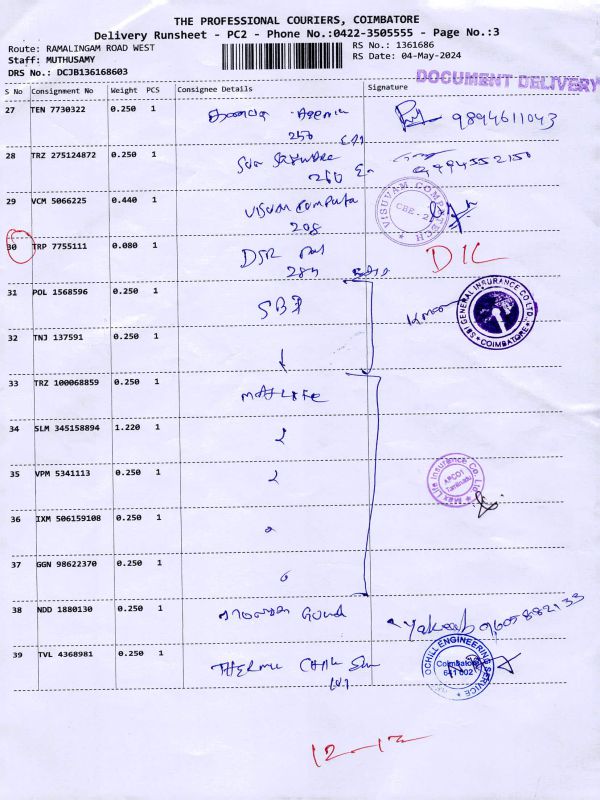 THE PROFESSIONAL COURIERS, COIMBATORE
Delivery Runsheet - PC2 - Phone No.:0422-3505555 - Page No.:3
Route: RAMALINGAM ROAD WEST
RS No.: 1361686
Staff: MUTHUSAMY
RS Date: 04-May-2024
DRS No.: DCJB136168603
DOCUMENT DELIVERY
S No Consignment No Weight PCS Consignee Details Signature
27 TEN 7730322 0.250 1 9894611043
250
28 TRZ 275124872 0.250 1
260
29 VCM 5066225 0.440 1
208
VISUVAM COMPUTECH
CBE - 2
30 TRP 7755111 0.080 1 DIL
284
31 POL 1568596 0.250 1 SBI
Kumar
SBI GENERAL INSURANCE CO.LTD.
COIMBATORE
32 TNJ 137591 0.250 1
33 TRZ 100068859 0.250 1 maxLife
34 SLM 345158894 1.220 1
35 VPM 5341113 0.250 1
Max Life Insurance Co. Ltd
Tamilnadu
36 IXM 506159108 0.250 1
37 GGN 98622370 0.250 1
38 NDD 1880130 0.250 1 Yakoob 9605882133
39 TVL 4368981 0.250 1 THERMO
OCHILL ENGINEERING SERVICE
Coimbatore
641 002
12-12